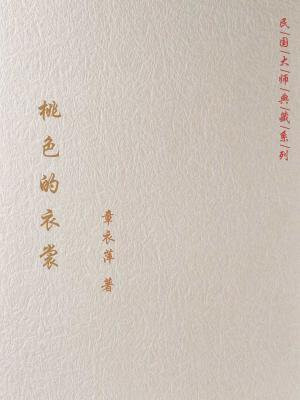 民国大师典藏系列
桃色的衣裳
章衣萍 著